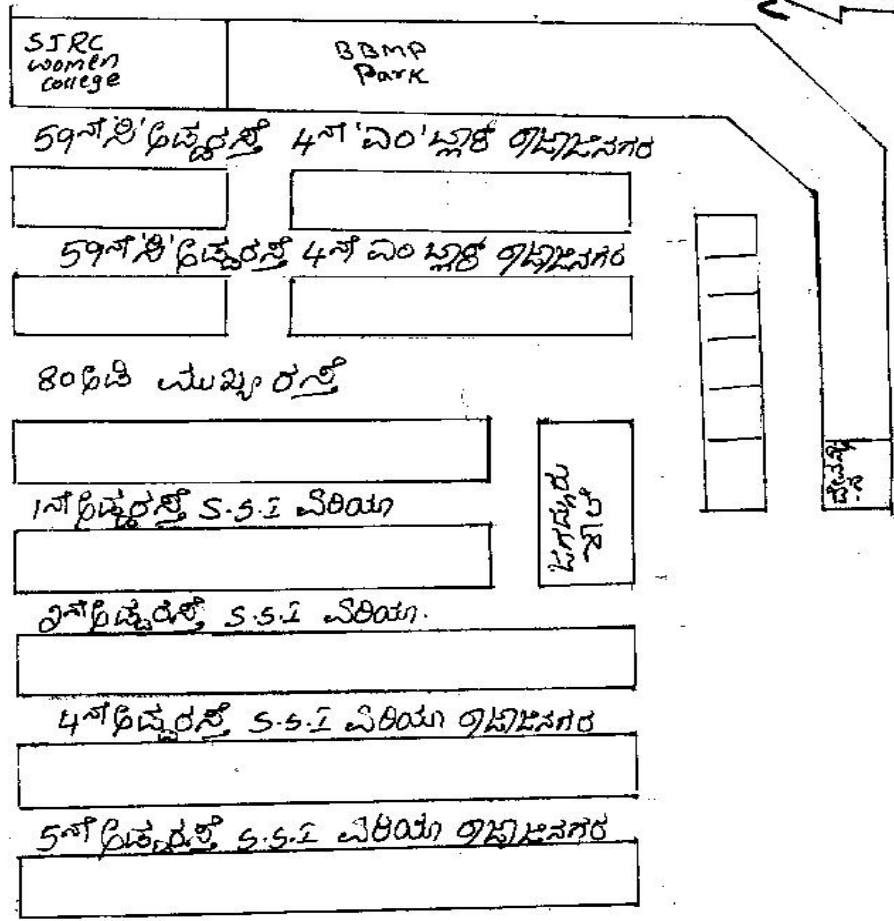 SJRC
women
college
BBMP
Park
59ನೇ 'ಸಿ' ಅಡ್ಡರಸ್ತೆ 4ನೇ 'ಎಂ' ಬ್ಲಾಕ್ ರಾಜಾಜಿನಗರ
59ನೇ 'ಸಿ' ಅಡ್ಡರಸ್ತೆ 4ನೇ ಎಂ ಬ್ಲಾಕ್ ರಾಜಾಜಿನಗರ
80ಅಡಿ ಮುಖ್ಯ ರಸ್ತೆ
1ನೇ ಅಡ್ಡರಸ್ತೆ S.S.I ಏರಿಯಾ
2ನೇ ಅಡ್ಡರಸ್ತೆ S.S.I ಏರಿಯಾ.
4ನೇ ಅಡ್ಡರಸ್ತೆ S.S.I ಏರಿಯಾ ರಾಜಾಜಿನಗರ
5ನೇ ಅಡ್ಡರಸ್ತೆ S.S.I ಏರಿಯಾ ರಾಜಾಜಿನಗರ